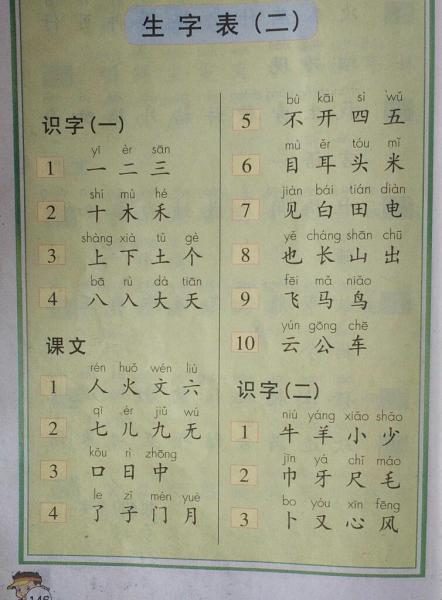 生字表(二)
识字(一)
yī èr sān
1 一 二 三
shí mù hé
2 十 木 禾
shàng xià tǔ gè
3 上 下 土 个
bā rù dà tiān
4 八 入 大 天
课文
rén huǒ wén liù
1 人 火 文 六
qī ér jiǔ wú
2 七 儿 九 无
kǒu rì zhōng
3 口 日 中
le zǐ mén yuè
4 了 子 门 月
bù kāi sì wǔ
5 不 开 四 五
mù ěr tóu mǐ
6 目 耳 头 米
jiàn bái tián diàn
7 见 白 田 电
yě cháng shān chū
8 也 长 山 出
fēi mǎ niǎo
9 飞 马 鸟
yún gōng chē
10 云 公 车
识字(二)
niú yáng xiǎo shǎo
1 牛 羊 小 少
jīn yá chǐ máo
2 巾 牙 尺 毛
bo yòu xīn fēng
3 卜 又 心 风
146